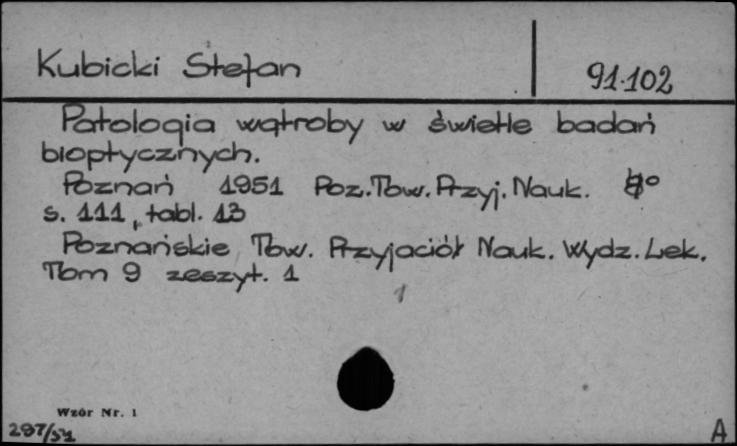 Kubicki Stefan
91.102
Patologia wątroby w świetle badań
bioptycznych.
Poznań 1951 Poz. Tow. Przyj. Nauk. 8°
s. 111, tabl. 13
Poznańskie Tow. Przyjaciół Nauk. Wydz. Lek.
Tom 9 zeszyt. 1
1
Wzór Nr. 1
297/51
A